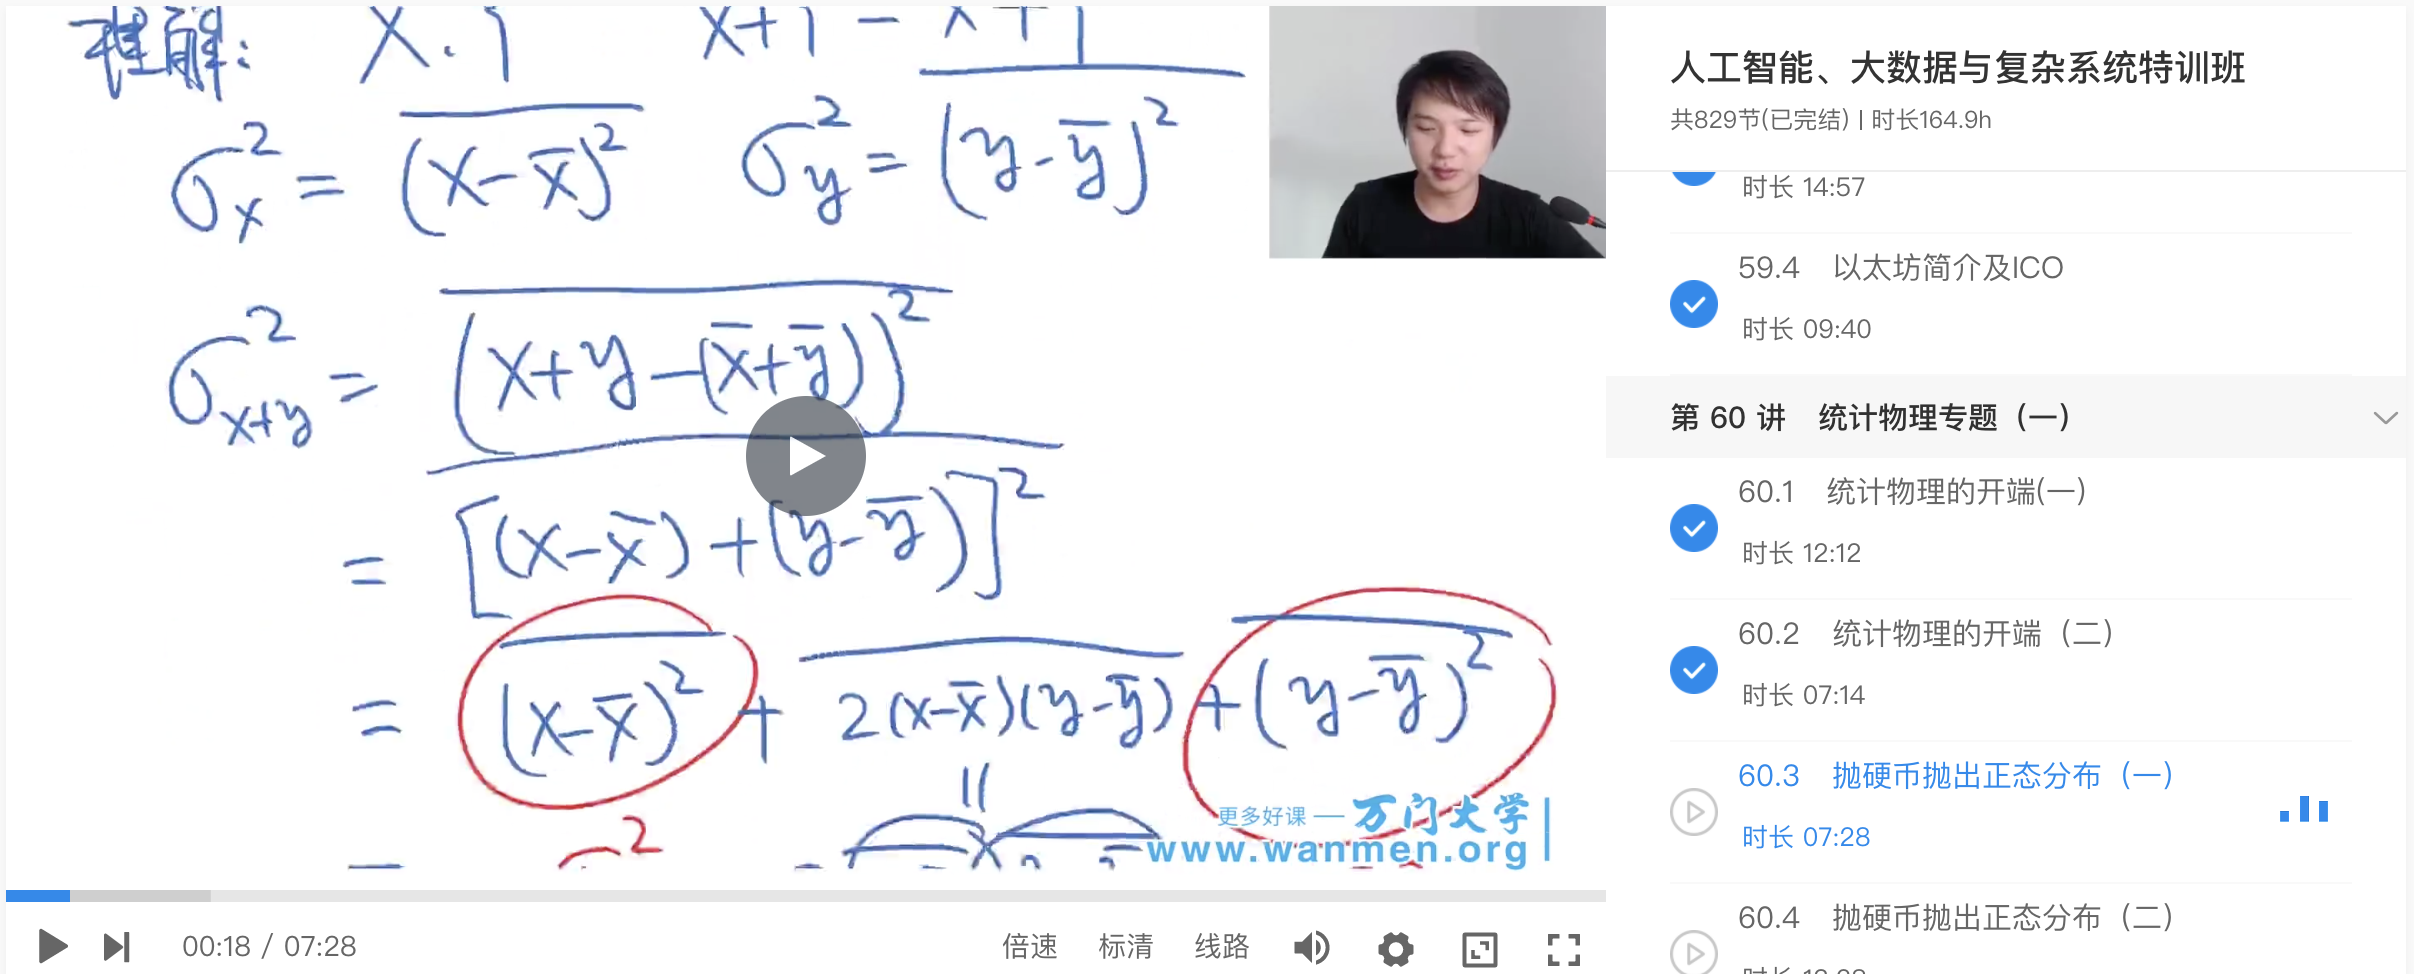 理解: x · y x+y - x+y
σx² = (x-x̄)² σy² = (y-ȳ)²
σx+y² = (x+y-(x̄+ȳ))²
= [(x-x̄)+(y-ȳ)]²
= (x-x̄)² + 2(x-x̄)(y-ȳ) + (y-ȳ)²
更多好课 — 万门大学
www.wanmen.org
00:18 / 07:28
倍速
标清
线路
人工智能、大数据与复杂系统特训班
共829节(已完结) | 时长164.9h
时长 14:57
59.4 以太坊简介及ICO
时长 09:40
第 60 讲 统计物理专题（一）
60.1 统计物理的开端(一)
时长 12:12
60.2 统计物理的开端（二）
时长 07:14
60.3 抛硬币抛出正态分布（一）
时长 07:28
60.4 抛硬币抛出正态分布（二）